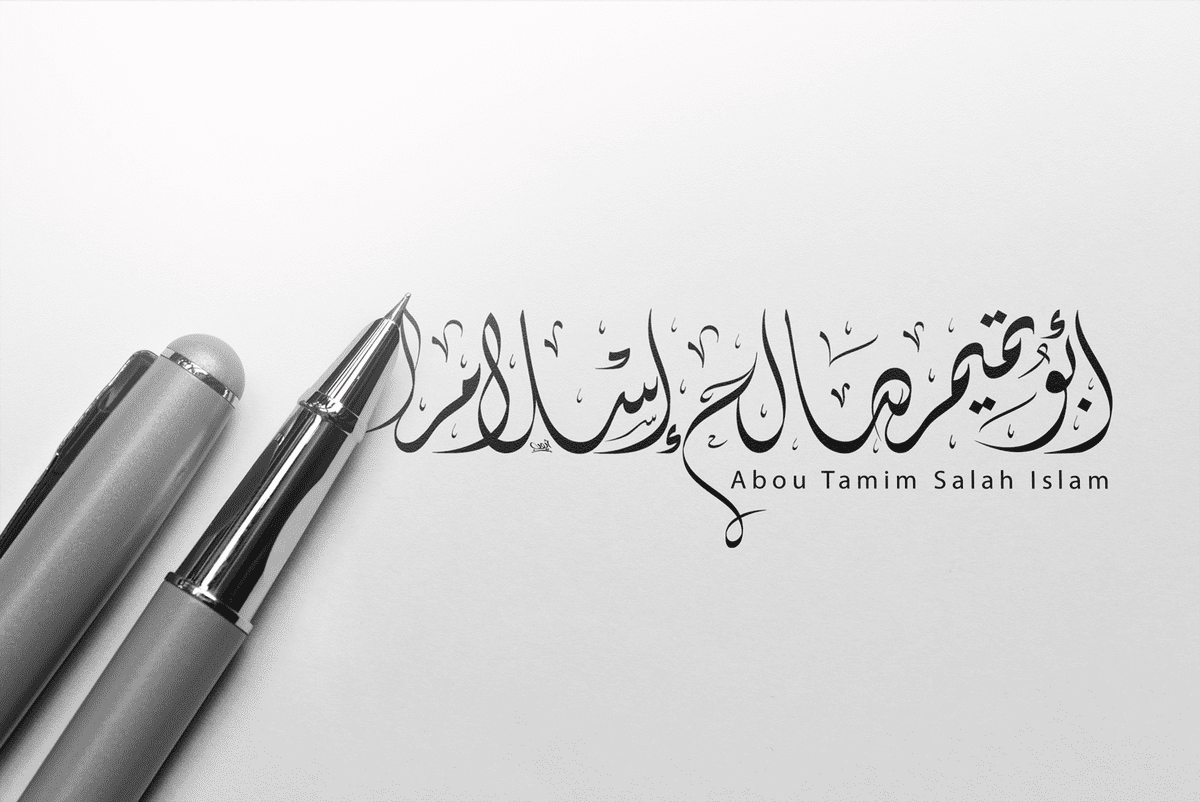 أبو تميم صالح إسلام
Abou Tamim Salah Islam